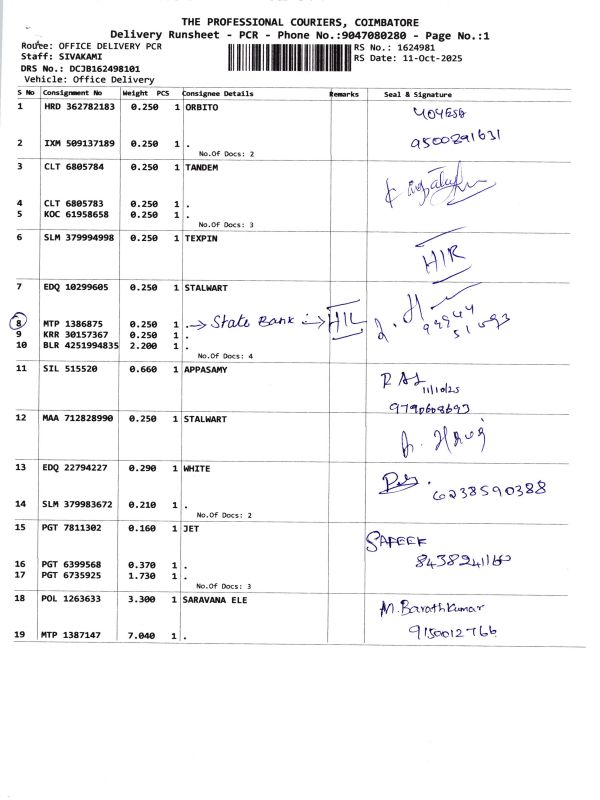 THE PROFESSIONAL COURIERS, COIMBATORE
Delivery Runsheet - PCR - Phone No.:9047080280 - Page No.:1
Route: OFFICE DELIVERY PCR
RS No.: 1624981
Staff: SIVAKAMI
RS Date: 11-Oct-2025
DRS No.: DCJB162498101
Vehicle: Office Delivery
S No Consignment No Weight PCS Consignee Details Remarks Seal & Signature
1 HRD 362782183 0.250 1 ORBITO
2 IXM 509137189 0.250 1 .
9500291631
No.Of Docs: 2
3 CLT 6805784 0.250 1 TANDEM
4 CLT 6805783 0.250 1 .
5 KOC 61958658 0.250 1 .
No.Of Docs: 3
6 SLM 379994998 0.250 1 TEXPIN
HIR
7 EDQ 10299605 0.250 1 STALWART
8 MTP 1386875 0.250 1 . → State Bank → HIL
9 KRR 30157367 0.250 1 .
10 BLR 4251994835 2.200 1 .
No.Of Docs: 4
11 SIL 515520 0.660 1 APPASAMY
11/10/25
9790608693
12 MAA 712828990 0.250 1 STALWART
13 EDQ 22794227 0.290 1 WHITE
6238590388
14 SLM 379983672 0.210 1 .
No.Of Docs: 2
15 PGT 7811302 0.160 1 JET
SAFEEK
16 PGT 6399568 0.370 1 .
17 PGT 6735925 1.730 1 .
No.Of Docs: 3
18 POL 1263633 3.300 1 SARAVANA ELE
M. Barathkumar
9150012766
19 MTP 1387147 7.040 1 .